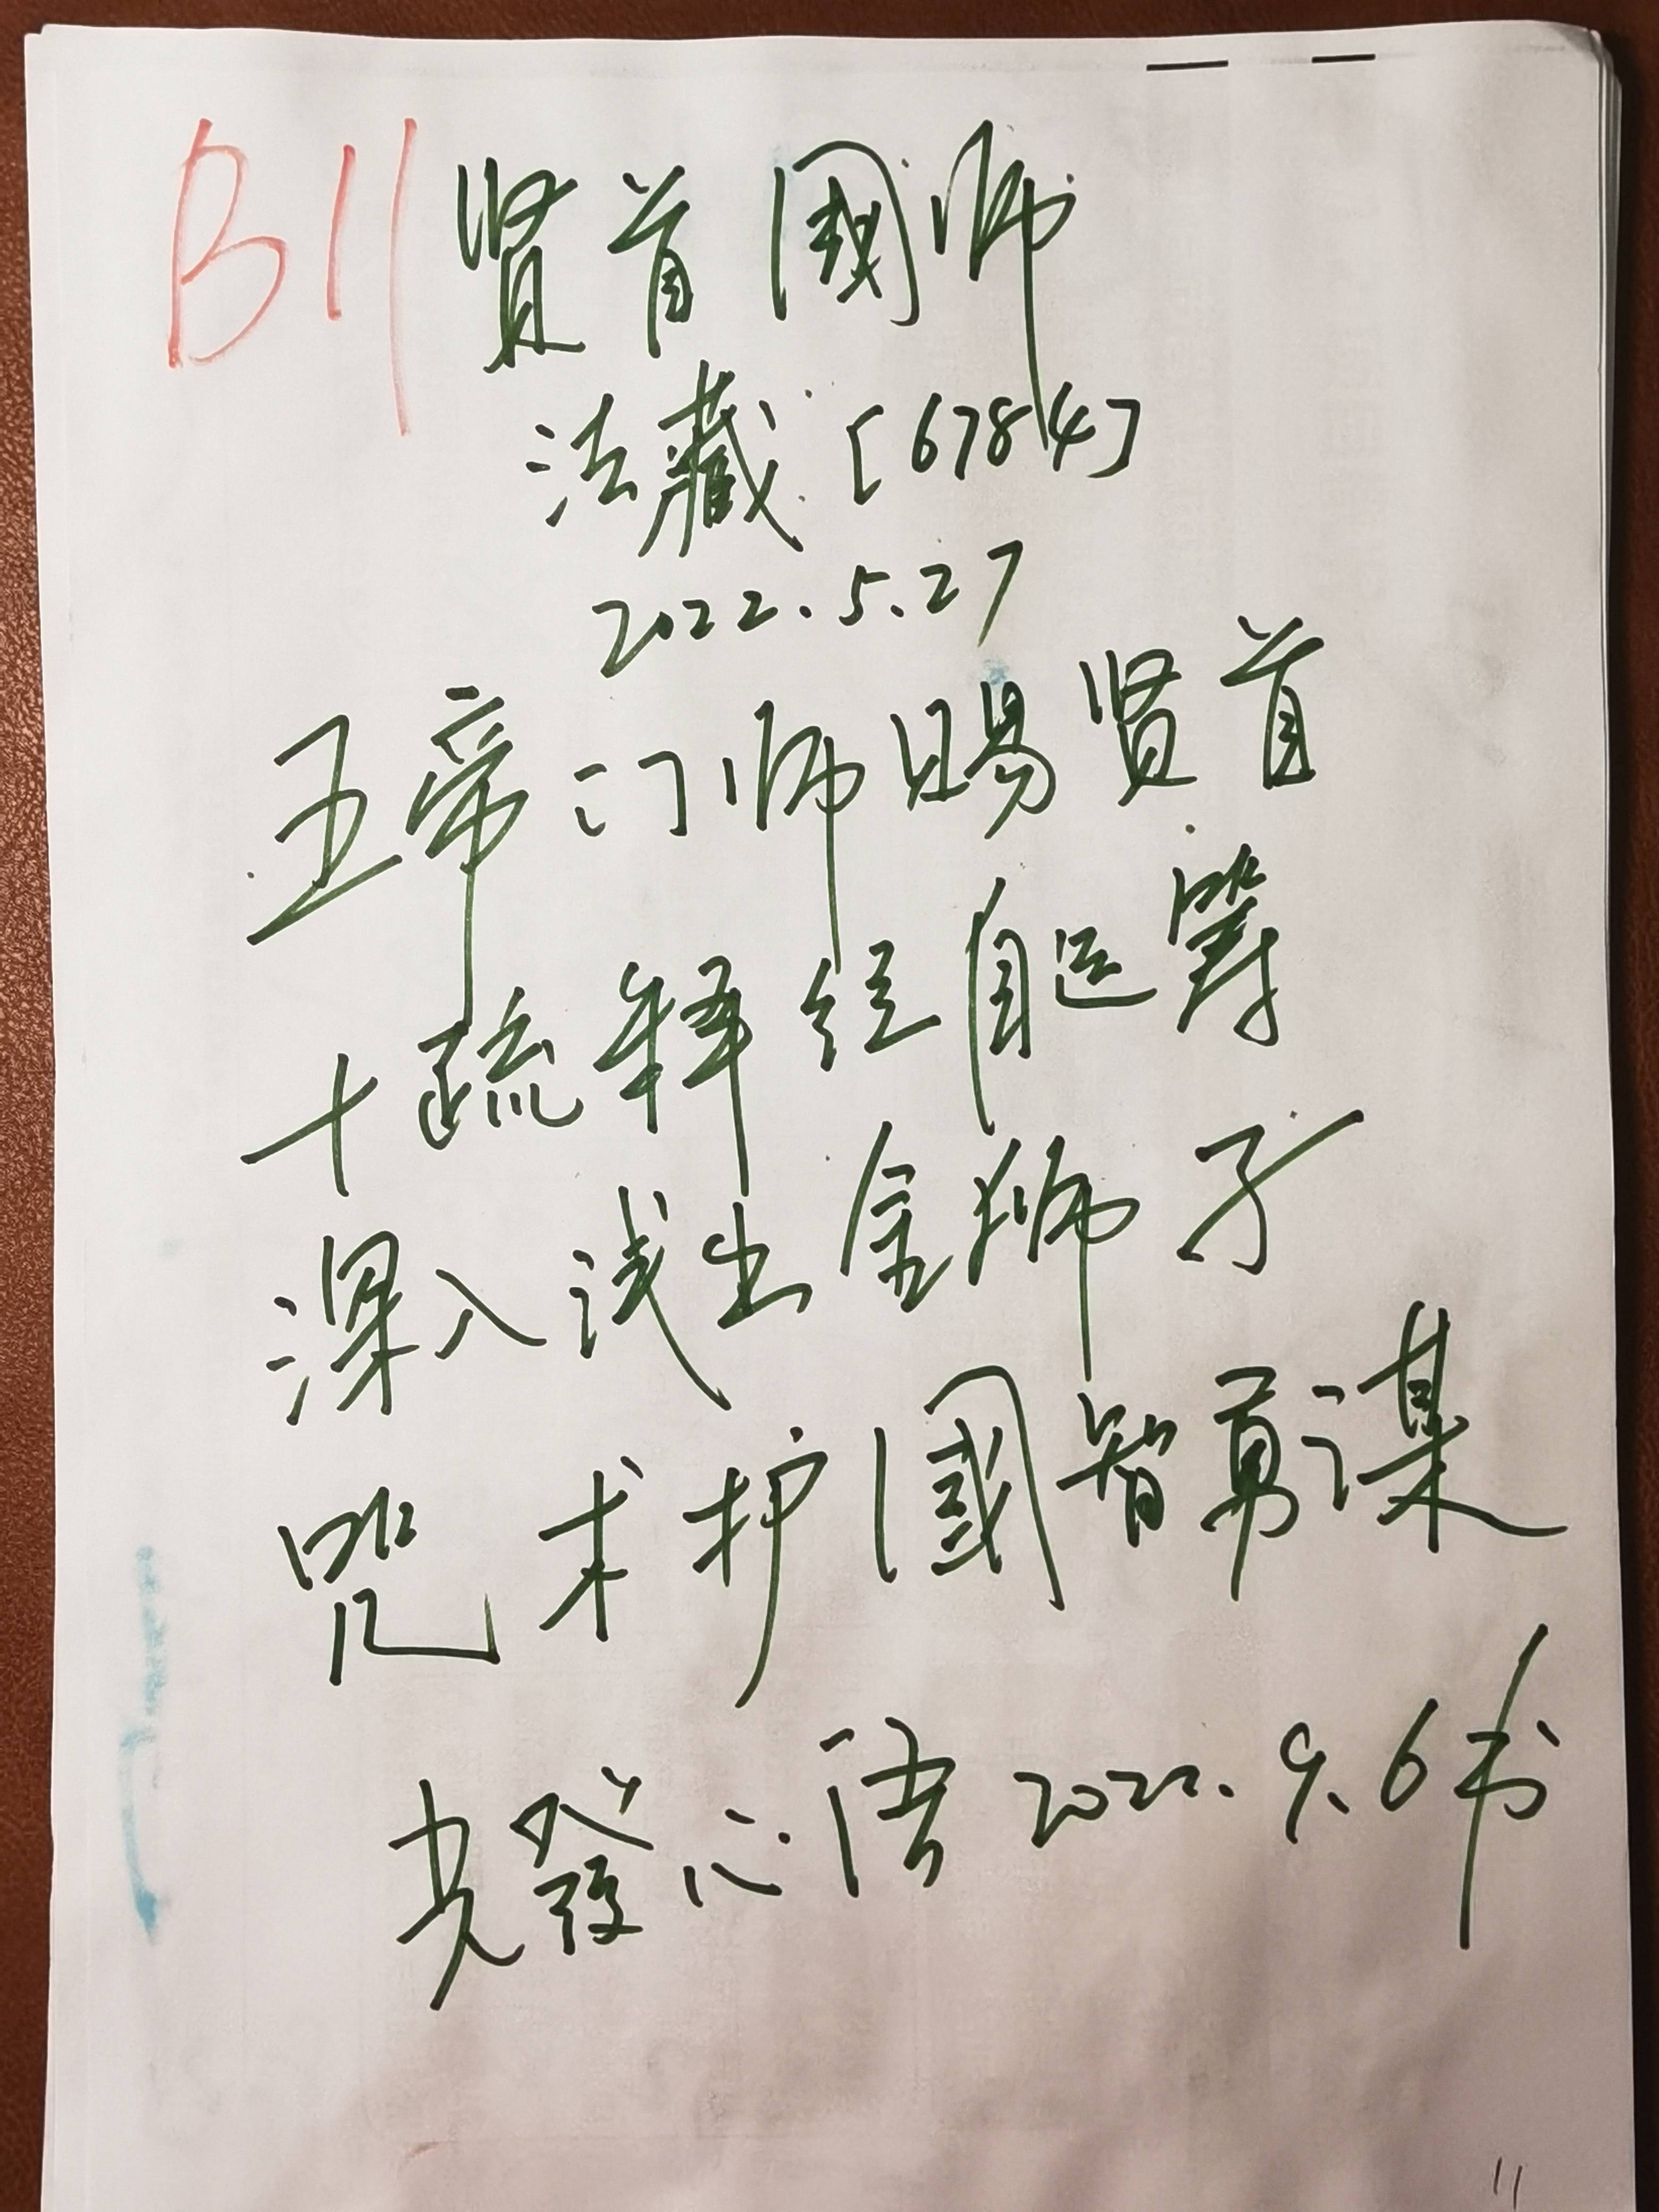 B11 贤首國师
法藏 [6784]
2022.5.27
五帝门师赐贤首
十疏释经自运筹
深入浅出金狮子
咒术护國智勇谋
光發心语 2022.9.6书
11